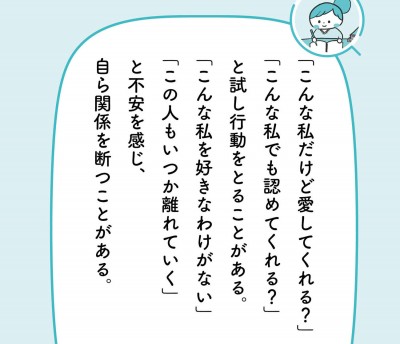 「こんな私だけど愛してくれる？」
「こんな私でも認めてくれる？」
と試し行動をとることがある。
「こんな私を好きなわけがない」
「この人もいつか離れていく」
と不安を感じ、
自ら関係を断つことがある。